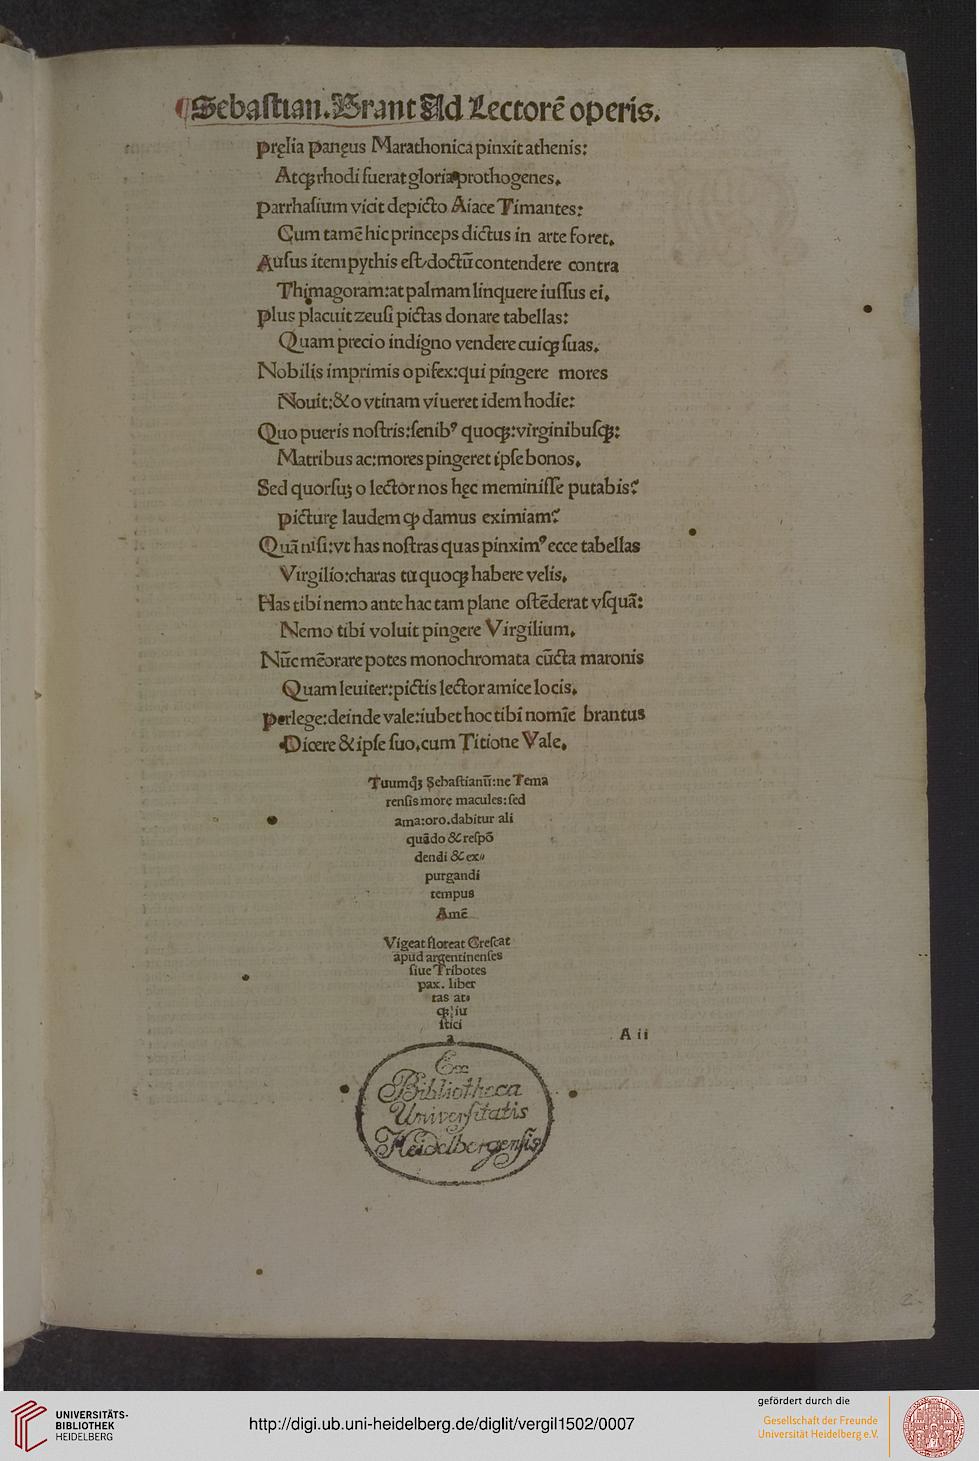 ¶Sebaſtian. Brant Ad Lectorē operis.
Pręlia Panęus Marathonica pinxit athenis:
Atqꝫ rhodi fuerat gloria prothogenes.
Parrhaſium vicit depicto Aiace Timantes:
Cum tamē hic princeps dictus in arte foret.
Auſus item pythis eſt/doctū contendere contra
Thimagoram: at palmam linquere iuſſus ei.
Plus placuit zeuſi pictas donare tabellas:
Quam precio indigno vendere cuiqꝫ ſuas.
Nobilis imprimis opifex: qui pingere mores
Nouit: & o vtinam viueret idem hodie:
Quo pueris noſtris: ſenibꝰ quoqꝫ: virginibuſqꝫ:
Matribus ac: mores pingeret ipſe bonos.
Sed quorſuꝫ o lector nos hęc meminiſſe putabis?
Picturę laudem ꝙ damus eximiam?
Quā niſi: vt has noſtras quas pinximꝰ ecce tabellas
Virgilio: charas tu quoqꝫ habere velis.
Has tibi nemo ante hac tam plane oſtēderat vſquā:
Nemo tibi voluit pingere Virgilium.
Nūc mēorare potes monochromata cūcta maronis
Quam leuiter: pictis lector amice locis.
Perlege: deinde vale: iubet hoc tibi nomīe brantus
Dicere & ipſe ſuo. cum Titione Vale.
Tuumqꝫ Sebaſtianū: ne Tema
renſis more macules: ſed
ama: oro. dabitur ali
quādo & reſpō
dendi & ex⸗
purgandi
tempus
Amē
Vigeat floreat Creſcat
apud argentinenſes
ſiue Tribotes
pax. liber
tas at⸗
qꝫ iu
ſtici
a
A ii
Ex
Bibliotheca
Universitatis
Heidelbergensis
2.
UNIVERSITÄTS-
BIBLIOTHEK
HEIDELBERG
http://digi.ub.uni-heidelberg.de/diglit/vergil1502/0007
gefördert durch die
Gesellschaft der Freunde
Universität Heidelberg e.V.